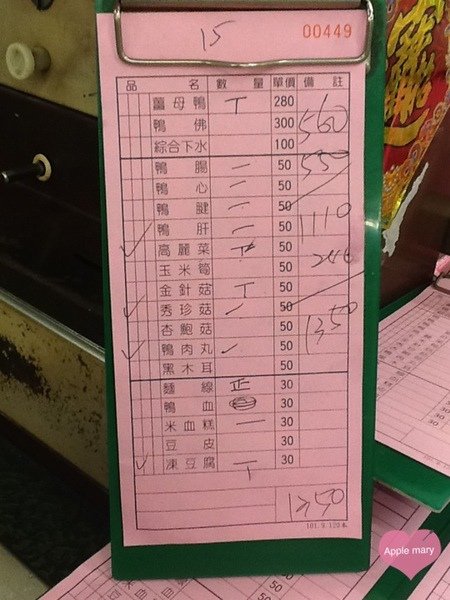 15 00449
品 名 數 量 單價 備 註
薑母鴨 丅 280
鴨 佛 300 560
綜合下水 100
鴨 腸 一 50 550
鴨 心 一 50
鴨 腱 一 50
鴨 肝 一 50 1110
高麗菜 50
玉米筍 50 240
金針菇 丅 50
秀珍菇 50
杏鮑菇 50 1350
鴨肉丸 50
黑木耳 50
麵 線 正 30
鴨 血 30
米血糕 一 30
豆 皮 30
凍豆腐 丅 30
1350
101.9.120本
Apple mary